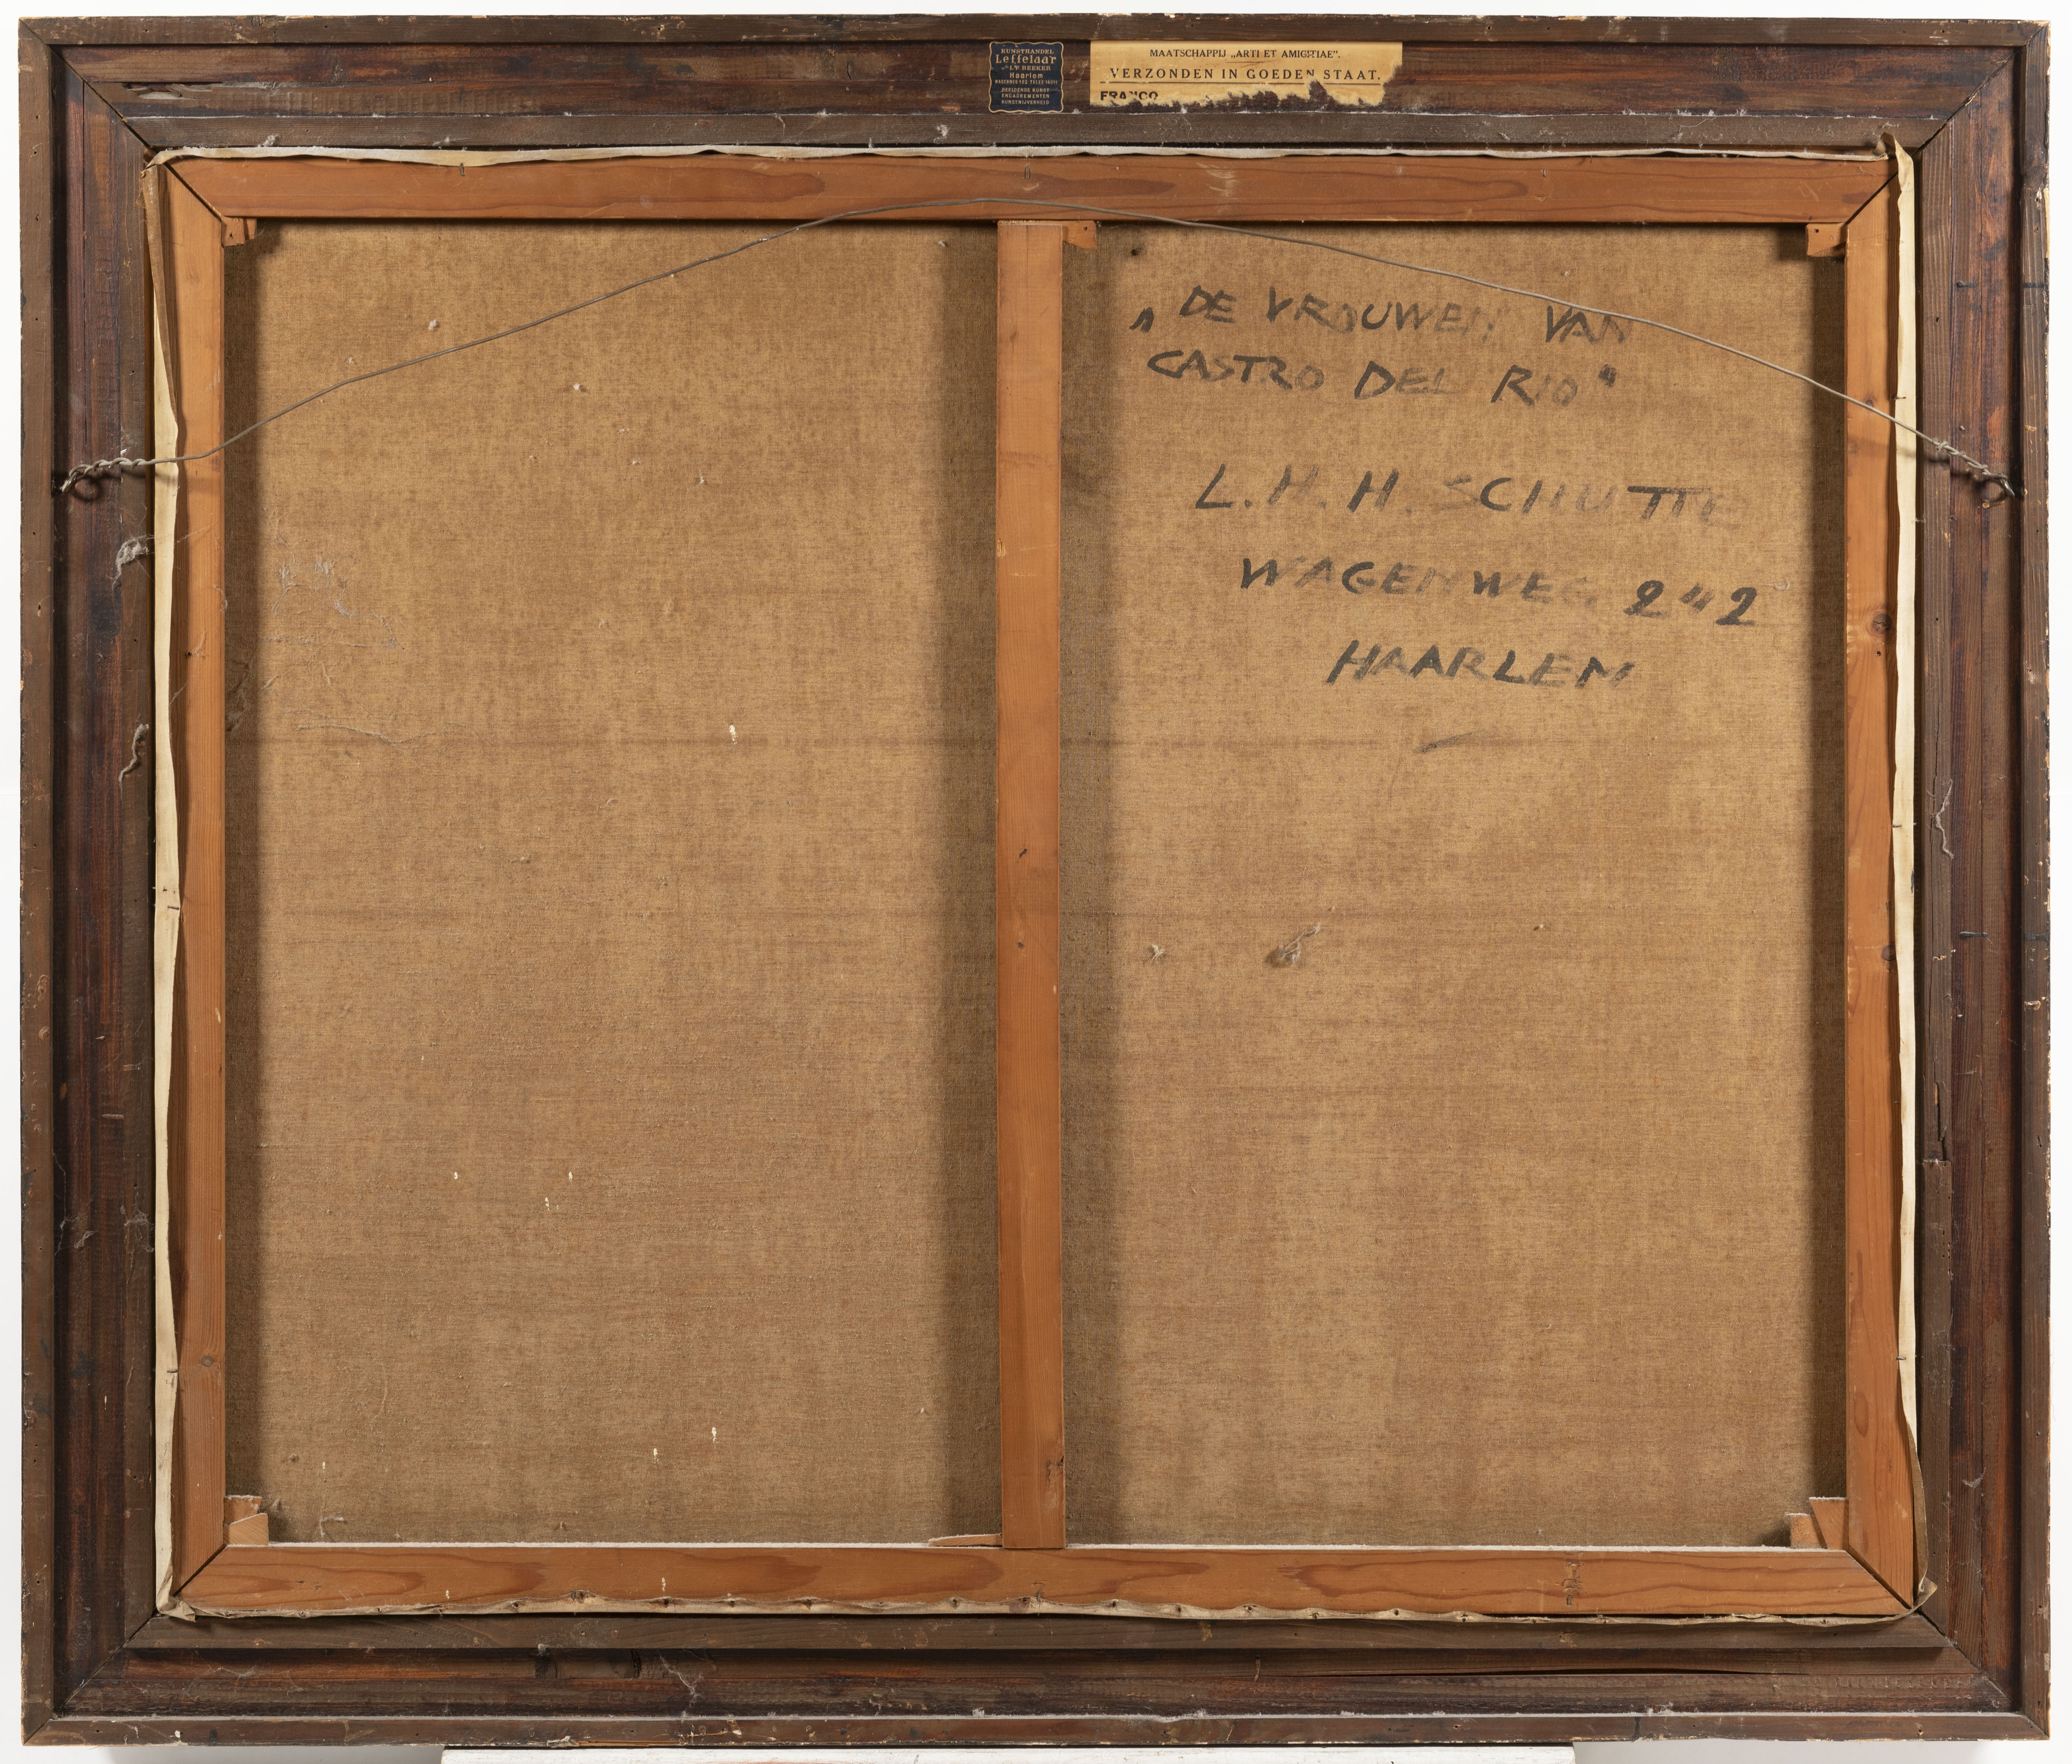 KUNSTHANDEL
Leffelaar
Haarlem
BEELDENDE KUNST
ENCADREMENTEN
KUNSTNIJVERHEID
MAATSCHAPPIJ „ARTI ET AMICITIAE".
VERZONDEN IN GOEDEN STAAT.
FRANCO
„DE VROUWEN VAN
CASTRO DEL RIO"
L.H.H. SCHUTTE
WAGENWEG 242
HAARLEM